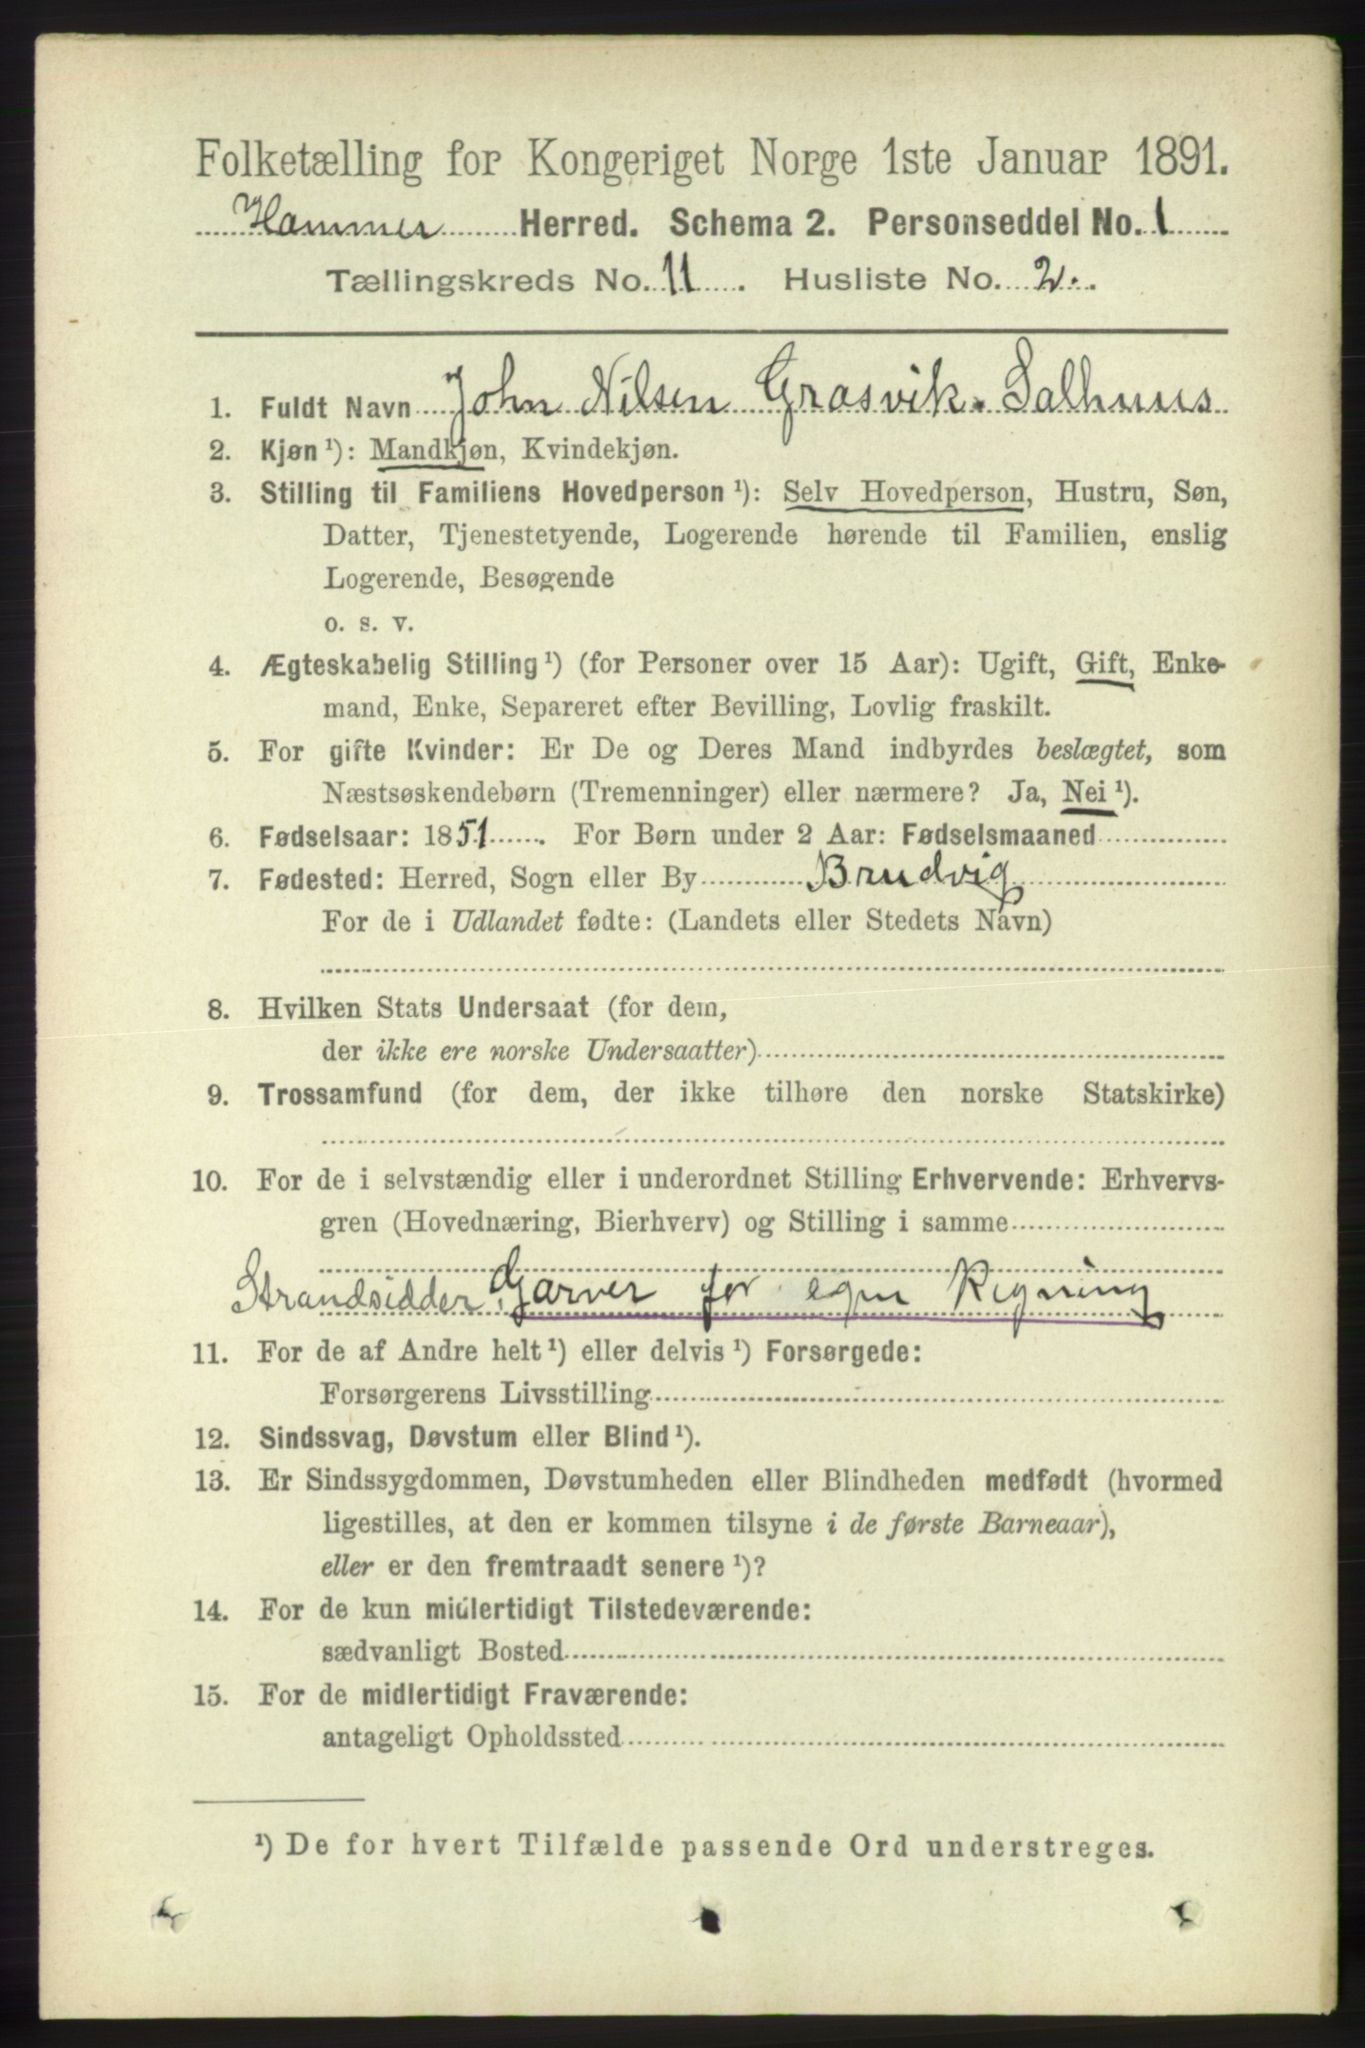 Folketælling for Kongeriget Norge 1ste Januar 1891.
Hammer Herred. Schema 2. Personseddel No. 1
Tællingskreds No. 11. Husliste No. 2.
1. Fuldt Navn John Nilsen Grasvik. Salhuus
2. Kjøn ¹): Mandkjøn, Kvindekjøn.
3. Stilling til Familiens Hovedperson ¹): Selv Hovedperson, Hustru, Søn,
Datter, Tjenestetyende, Logerende hørende til Familien, enslig
Logerende, Besøgende
o. s. v.
4. Ægteskabelig Stilling ¹) (for Personer over 15 Aar): Ugift, Gift, Enke-
mand, Enke, Separeret efter Bevilling, Lovlig fraskilt.
5. For gifte Kvinder: Er De og Deres Mand indbyrdes beslægtet, som
Næstsøskendebørn (Tremenninger) eller nærmere? Ja, Nei ¹).
6. Fødselsaar: 1851. For Børn under 2 Aar: Fødselsmaaned
7. Fødested: Herred, Sogn eller By Brudvig
For de i Udlandet fødte: (Landets eller Stedets Navn)
8. Hvilken Stats Undersaat (for dem,
der ikke ere norske Undersaatter)
9. Trossamfund (for dem, der ikke tilhøre den norske Statskirke)
10. For de i selvstændig eller i underordnet Stilling Erhvervende: Erhvervs-
gren (Hovednæring, Bierhverv) og Stilling i samme
Strandsidder, Garver for egen Regning
11. For de af Andre helt ¹) eller delvis ¹) Forsørgede:
Forsørgerens Livsstilling
12. Sindssvag, Døvstum eller Blind ¹).
13. Er Sindssygdommen, Døvstumheden eller Blindheden medfødt (hvormed
ligestilles, at den er kommen tilsyne i de første Barneaar),
eller er den fremtraadt senere ¹)?
14. For de kun midlertidigt Tilstedeværende:
sædvanligt Bosted
15. For de midlertidigt Fraværende:
antageligt Opholdssted
¹) De for hvert Tilfælde passende Ord understreges.